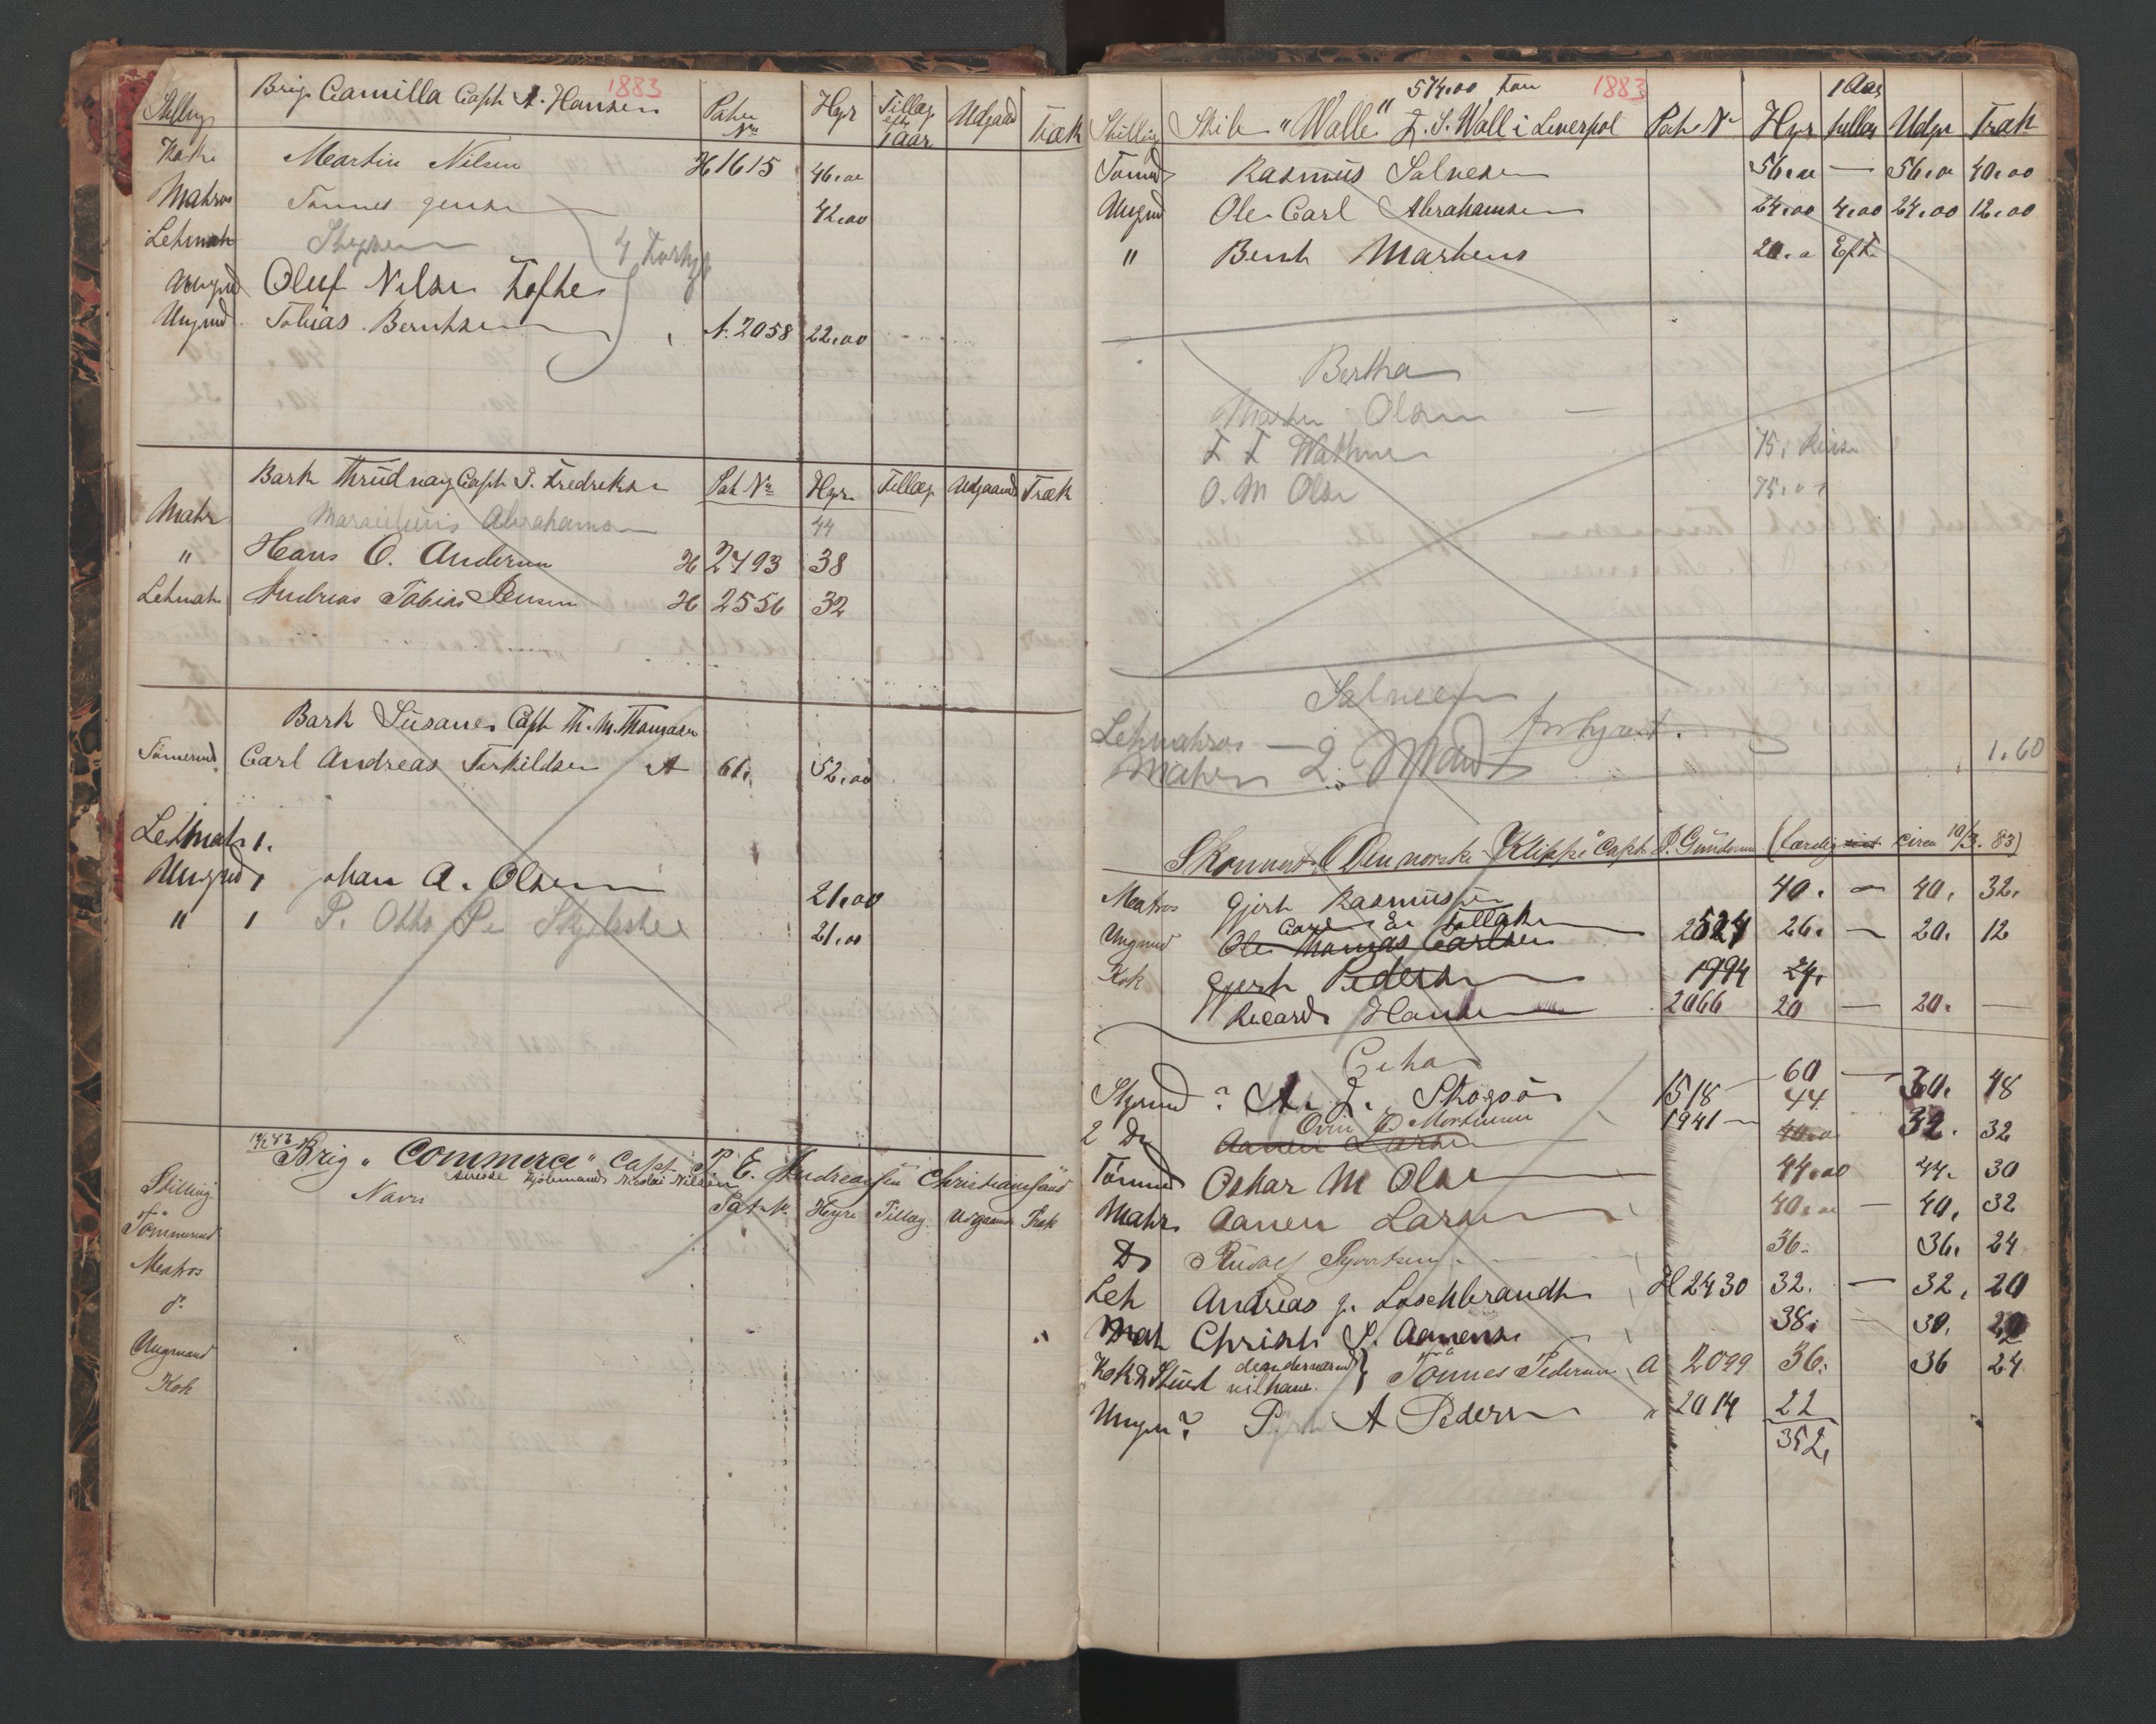 1883
Brig Camilla Capt A. Hansen
Patn No Hyr Tillæg eft 1 aar Udgaand Træk
Kok Martin Nilsen H 1615 46,00
Matros Tønnes Jensen 42,00
Letmatr
Ungmd Oluf Nilsen Tofte
Ungmd Tobias Berntsen A. 2058 22,00
Bark Thrudvang Capt I. Fredriksen Pat No Hyr Tillæg Udgaand Træk
Matr Abrahamsen 44
" Hans O. Andersen H 2793 38
Letmatr Andreas Tobias Jensen H 2556 32
Bark Susanes Capt Th. M. Thomasen
Tømermd Carl Andreas Terkildsen A 61. 52,00
Letmatr 1.
Ungmd 1 Johan A. Olsen 21,00
" 1 P. Otto 21,00
Brig "Commerce" Capt P. E. Andreassen Christianssand
Adresse Kjøbmand Nicolai Nilsen
Stilling Navn Pat. N. Hyre Tillæg. Udgaande Træk
Tømmermd
Matros
do
Ungmand
Kok
574,00 Ton 1883
Stilling Skib "Walle" L. S. Wall i Liverpol Pat No Hyr 1 Aar tillæg Udgr Træk
Tømmd Rasmus Salvesen 56,00 — 56,00 40,00
Ungmd Ole Carl Abrahamsen 24,00 4,00 24,00 12,00
" Bernt Martens 20,0 Eft.
Bertha
Martin Olsen —
T T Wathne 75,
O. M Olsen 75,00
Salvesen
Letmatros — 2. Mand forhyret.
Matros
1.60
Skonnert "Den norske Klippe" Capt P. Gundersen (færdig circa 10/3. 83)
Matros Gjert Rasmussen 40. — 40, 32,
Carl E. Tollaksen
Ungmd Ole Thomas Carlsen 2524 26. — 20. 12
Kok Gjert Pedersen 1994 24,
Ricard Hansen 2066 20 — 20. —
Geha
Styrmd ? A. L. Skogsø 1518 — 60 — 60. 48
Ovin O Mortensen 1941 — 44
2 Do Aanen Larsen 40,00 32. 32
Tømmd Oskar M Olsen 44,00 44. 30
Matrs Aanen Larsen 40,00 — 40, 32
Do Rudolf Syvertsen 36. 36, 24
Let Andreas J. Loschbrandt H 2430 32. — 32, 20
Mat Christi S. Aanensen 38. 30,
Kok & Stuert Tönnes Pedersen A 2099 36. 36 24
Ungm ? P. A Pedersen " 2014 22
352,